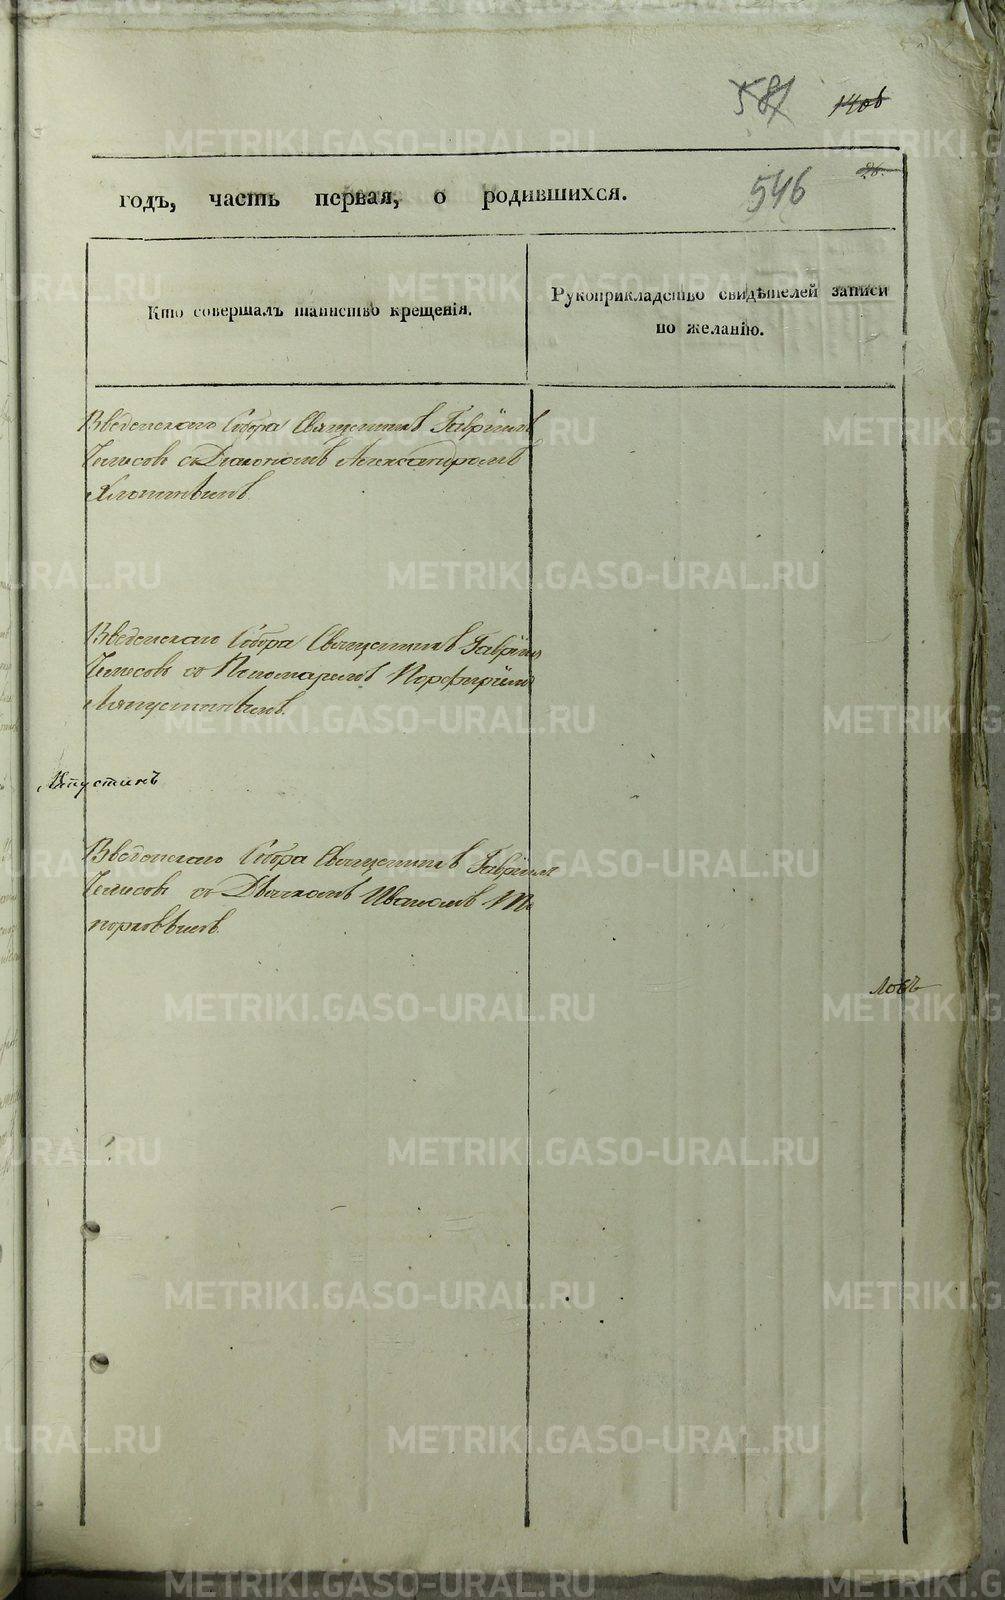 581 1406
годъ, часть первая, о родившихся. 546
26.
Кто совершалъ таинство крещенія.
Рукоприкладство свидѣтелей записи
по желанію.
Введенскаго Собора Священникъ Гавріилъ
съ Діакономъ Александромъ
Введенскаго Собора Священникъ Гавріилъ
съ Пономаремъ Порфиріемъ
Ляпустинъ
Введенскаго Собора Священникъ Гавріилъ
съ Дьячкомъ Иваномъ То
порковымъ
METRIKI.GASO-URAL.RU